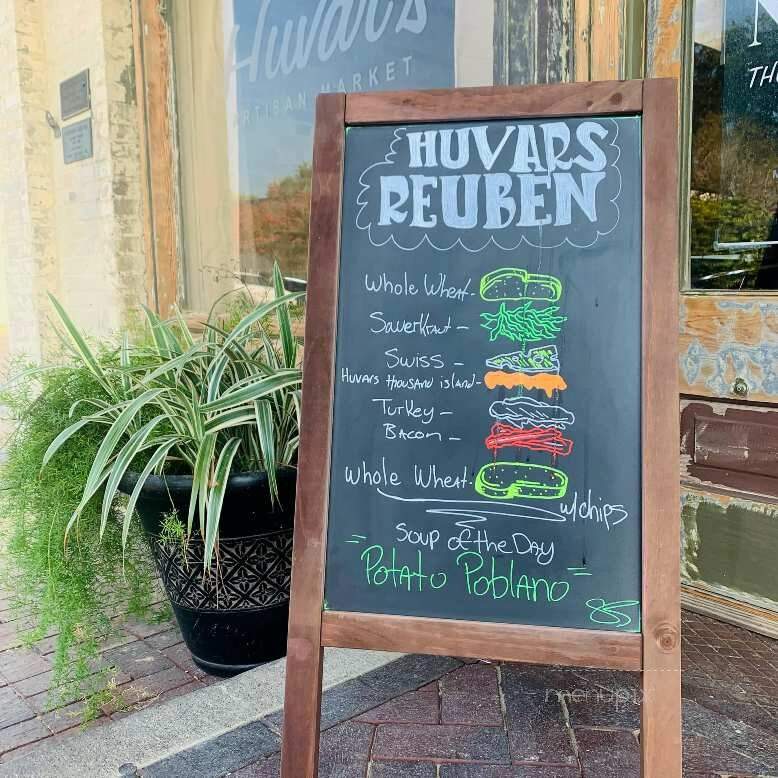 Huvar's
ARTISAN MARKET
TH
HUVARS
REUBEN
Whole Wheat-
Sauerkraut -
Swiss -
Huvars thousand island-
Turkey -
Bacon -
Whole Wheat-
w/chips
Soup of the Day
=Potato Poblano=
menupix